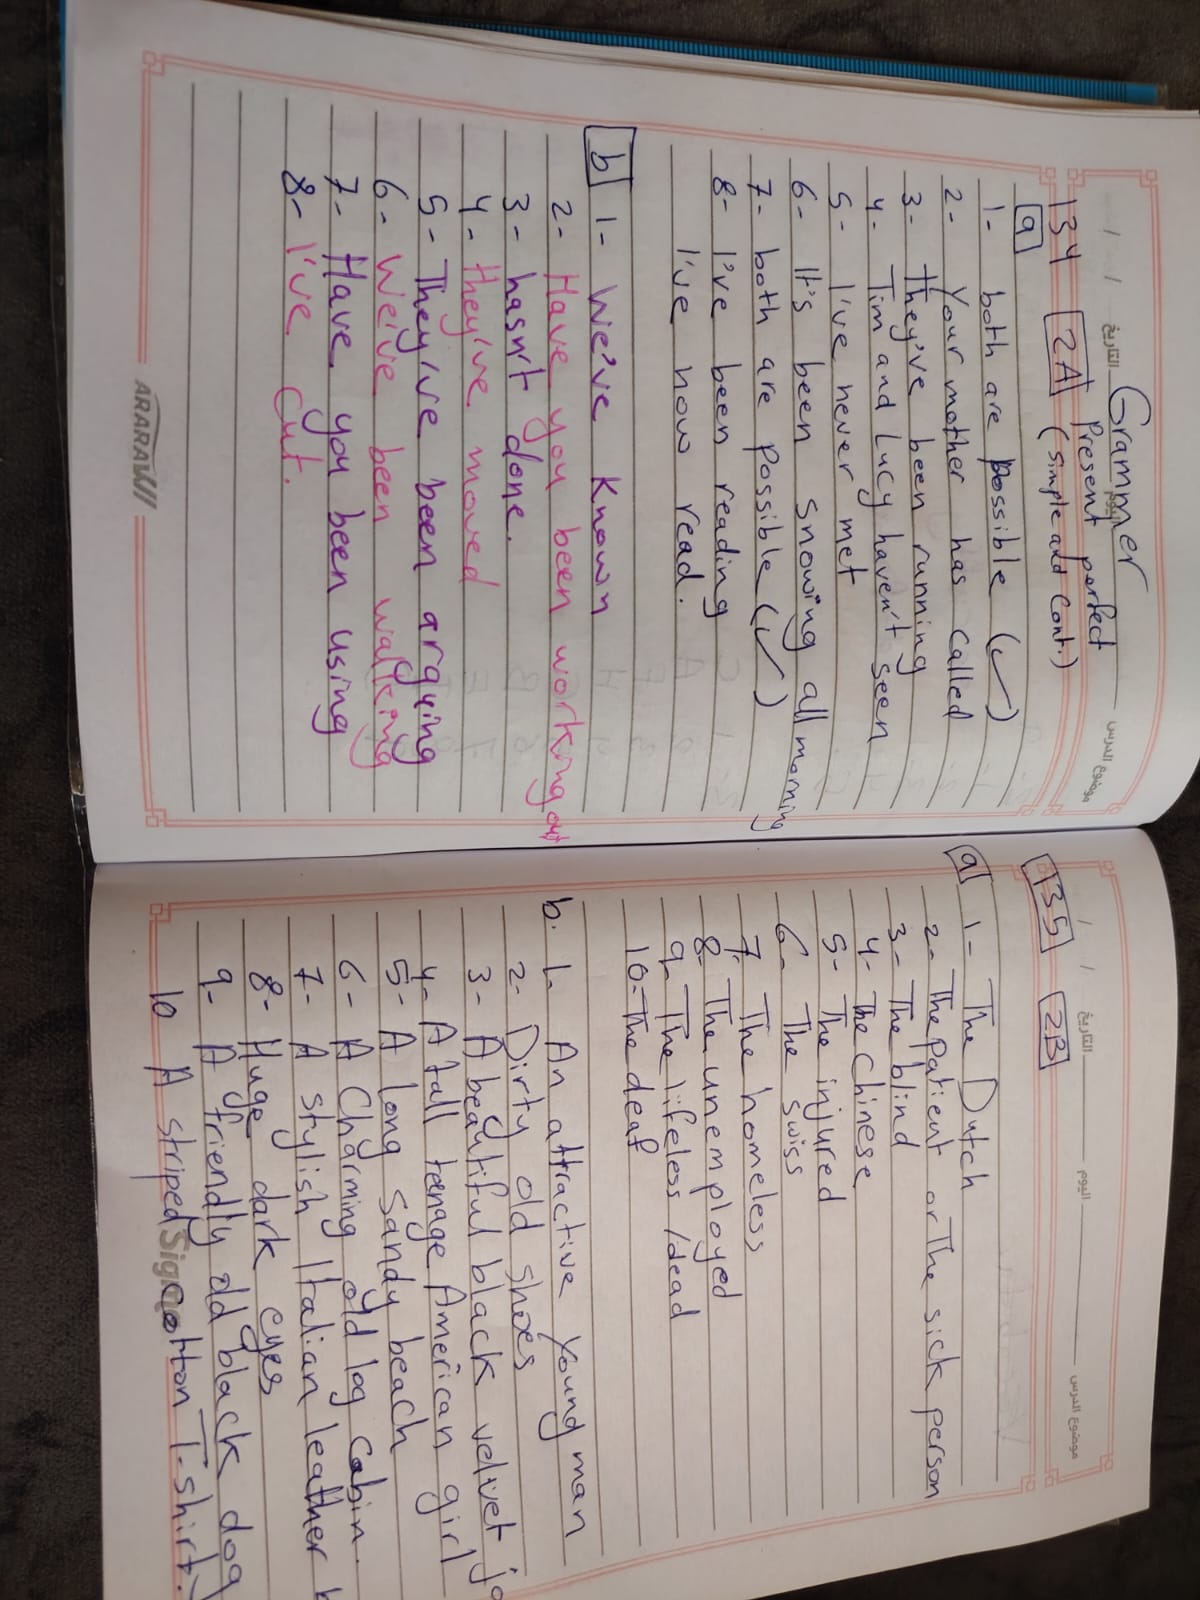 Grammer
التاريخ
اليوم
موضوع الدرس
Present perfect
134 2A (Simple and Cont.)
a
1- both are possible (✓)
2- Your mother has called
3- They've been running
4- Tim and Lucy haven't seen
5- I've never met
6- It's been snowing all morning
7- both are possible (✓)
8- I've been reading
I've now read.
b 1- We've known
2- Have you been working out
3- hasn't done.
4- they've moved
5- They've been arguing
6- We've been walking
7- Have you been using
8- I've cut.
ARARAWI
التاريخ
اليوم
موضوع الدرس
135 2B
a 1- The Dutch
2- The patient or The sick person
3- The blind
4- The Chinese
5- The injured
6- The swiss
7- The homeless
8- The unemployed
9- The lifeless / dead
10- The deaf
b. 1- An attractive young man
2- Dirty old shoes
3- A beautiful black velvet
4- A tall teenage American girl
5- A long sandy beach
6- A Charming old log cabin.
7- A stylish Italian leather
8- Huge dark eyes
9- A friendly old black dog
10 A striped cotton T-shirt.